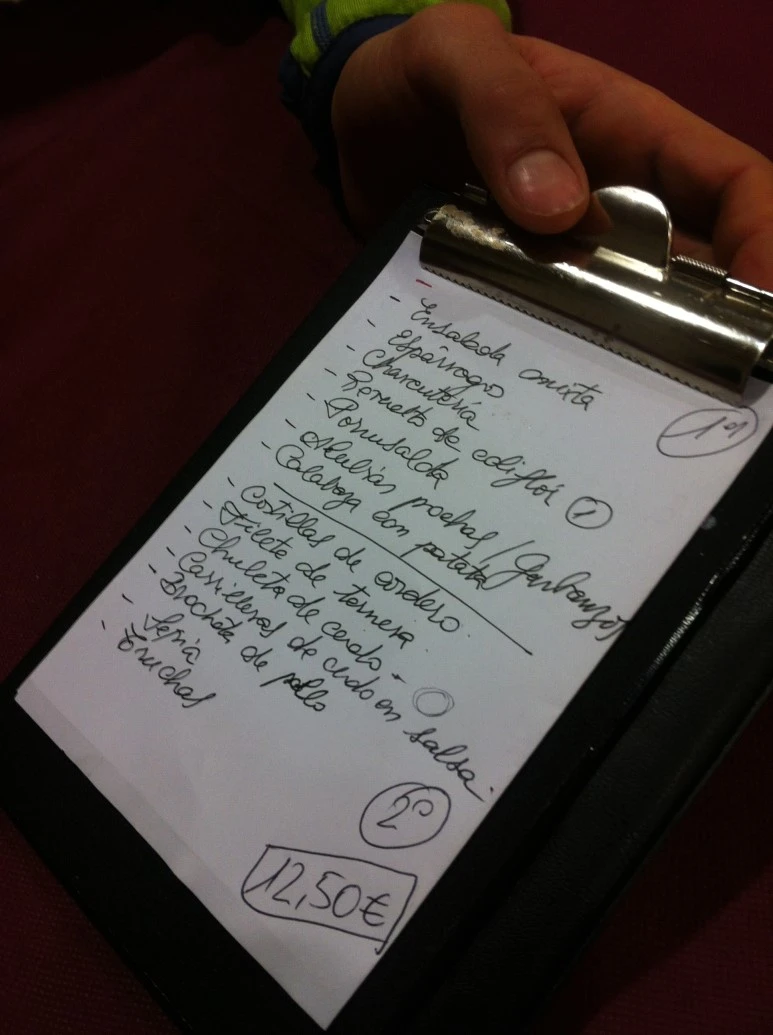 - Ensalada mixta
- Espárragos
- Charcutería
- Revuelto de coliflor 1
- Porrusalda
- Alubias pochas / Garbanzos
- Calabaza con patata
- Costillas de cordero.
- Filete de ternera.
- Chuleta de cerdo.
- Carrilleras de cerdo en salsa.
- Brocheta de pollo
- Sepia
- Truchas
2º
12,50€